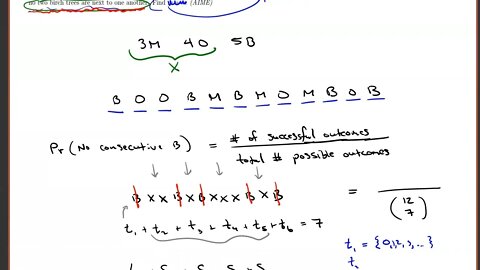 no two birch trees are next to one another. Find (AIME)
3M 4O 5B
X
B O O B M B M O M B O B
Pr(No consecutive B) = # of successful outcomes / total # possible outcomes
B X X B X B X X X B X B = / (12 7)
t1 + t2 + t3 + t4 + t5 + t6 = 7
t1 = {0,1,2,3,...}
t2